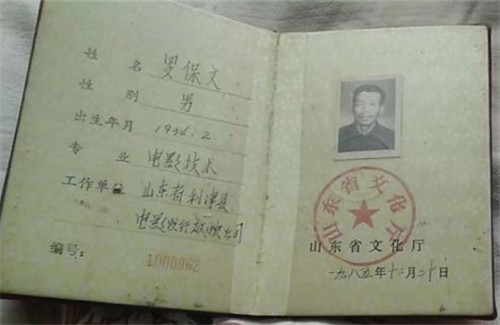 姓名 罗保文
性别 男
出生年月 1944.2.
专业 电影技术
工作单位 山东省利津县
电影发行放映公司
编号: 1000962
山东省文化厅
山东省文化厅
一九八五年十二月二十日